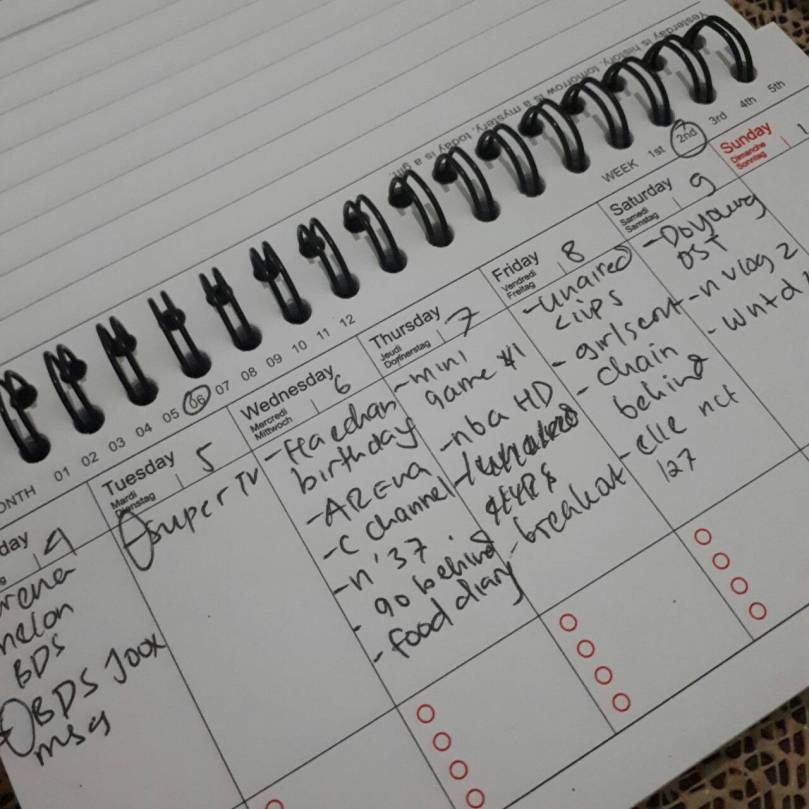 Yesterday is history, tomorrow is a mystery, today is a gift.
WEEK 1st 2nd 3rd 4th 5th
ONTH 01 02 03 04 05 06 07 08 09 10 11 12
day 4
rena
melon
BDS
BDS Joox
msg
Tuesday 5
Mardi
Dienstag
- super TV
Wednesday 6
Mercredi
Mittwoch
- Haechan
birthday
- ARENA
- C channel
- n'37
- go behind
- food diary
Thursday 7
Jeudi
Donnerstag
- mini
game #1
- nba HD
- breakat
Friday 8
Vendredi
Freitag
- unaired
clips
- girlsent
- chain
behind
- elle nct
127
Saturday 9
Samedi
Samstag
- Doyoung
OST
- n vlog 2
- wntd
Sunday 1
Dimanche
Sonntag